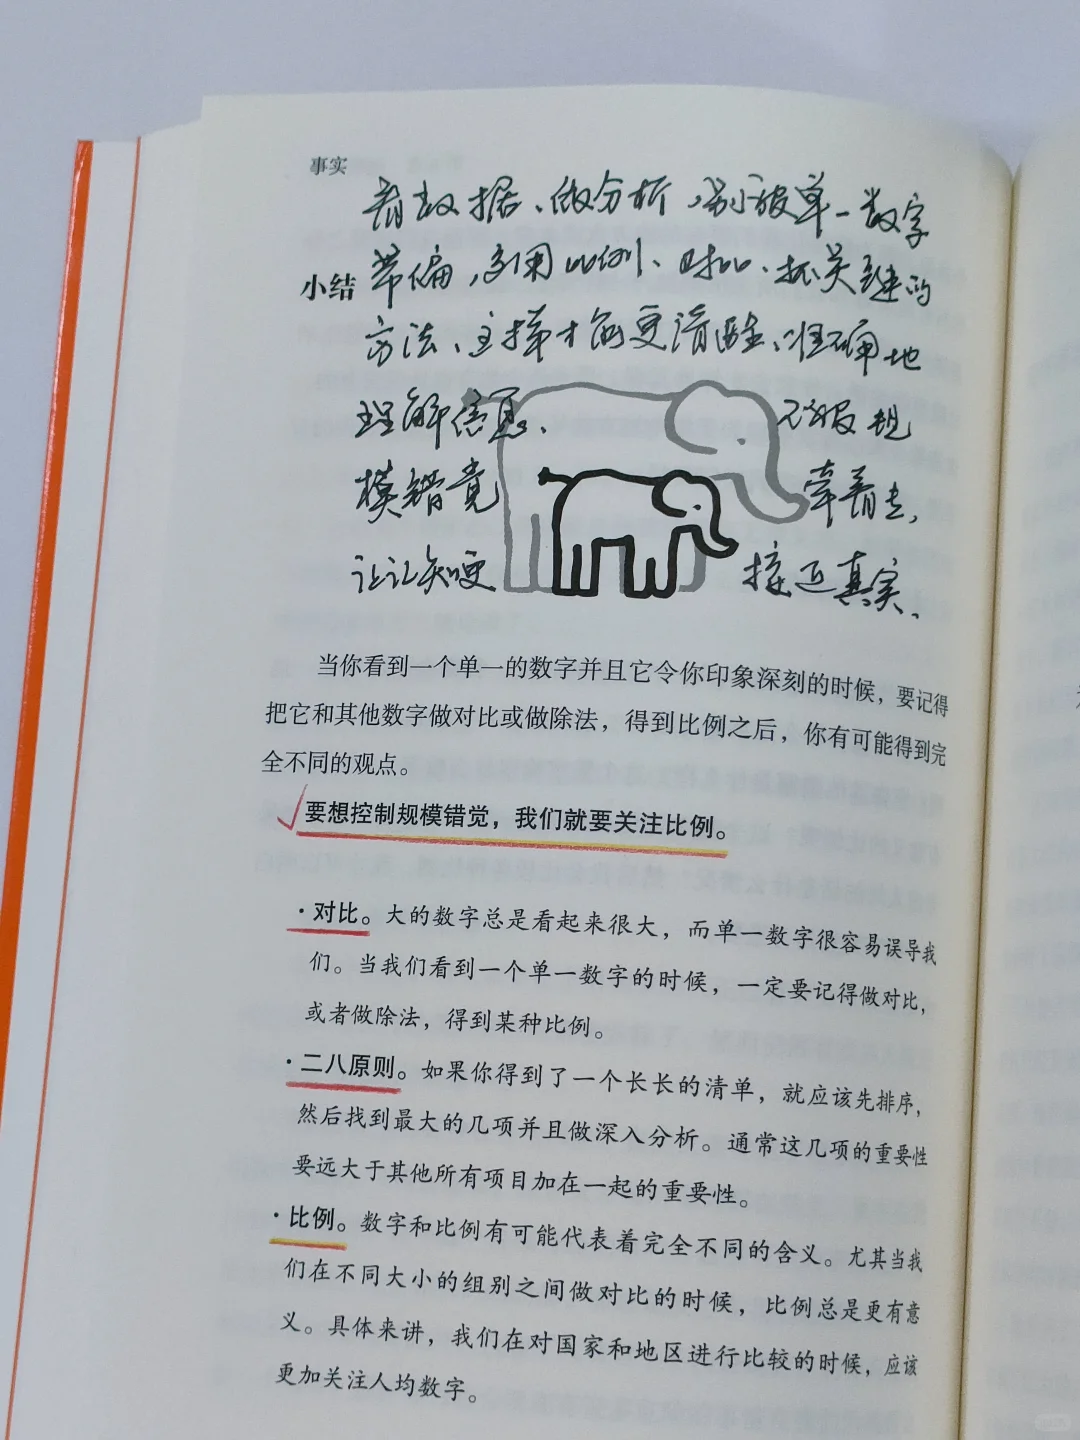 事实
看数据、做分析,别被单一数字
小结
带偏,多用比例、对比、抓关键的
方法、这样才能更清醒、准确地
理解信息、不被规
模错觉牵着走,
让认知更接近真实、
当你看到一个单一的数字并且它令你印象深刻的时候,要记得
把它和其他数字做对比或做除法,得到比例之后,你有可能得到完
全不同的观点。
要想控制规模错觉,我们就要关注比例。
·对比。大的数字总是看起来很大,而单一数字很容易误导我
们。当我们看到一个单一数字的时候,一定要记得做对比,
或者做除法,得到某种比例。
·二八原则。如果你得到了一个长长的清单,就应该先排序,
然后找到最大的几项并且做深入分析。通常这几项的重要性
要远大于其他所有项目加在一起的重要性。
·比例。数字和比例有可能代表着完全不同的含义。尤其当我
们在不同大小的组别之间做对比的时候,比例总是更有意
义。具体来讲,我们在对国家和地区进行比较的时候,应该
更加关注人均数字。